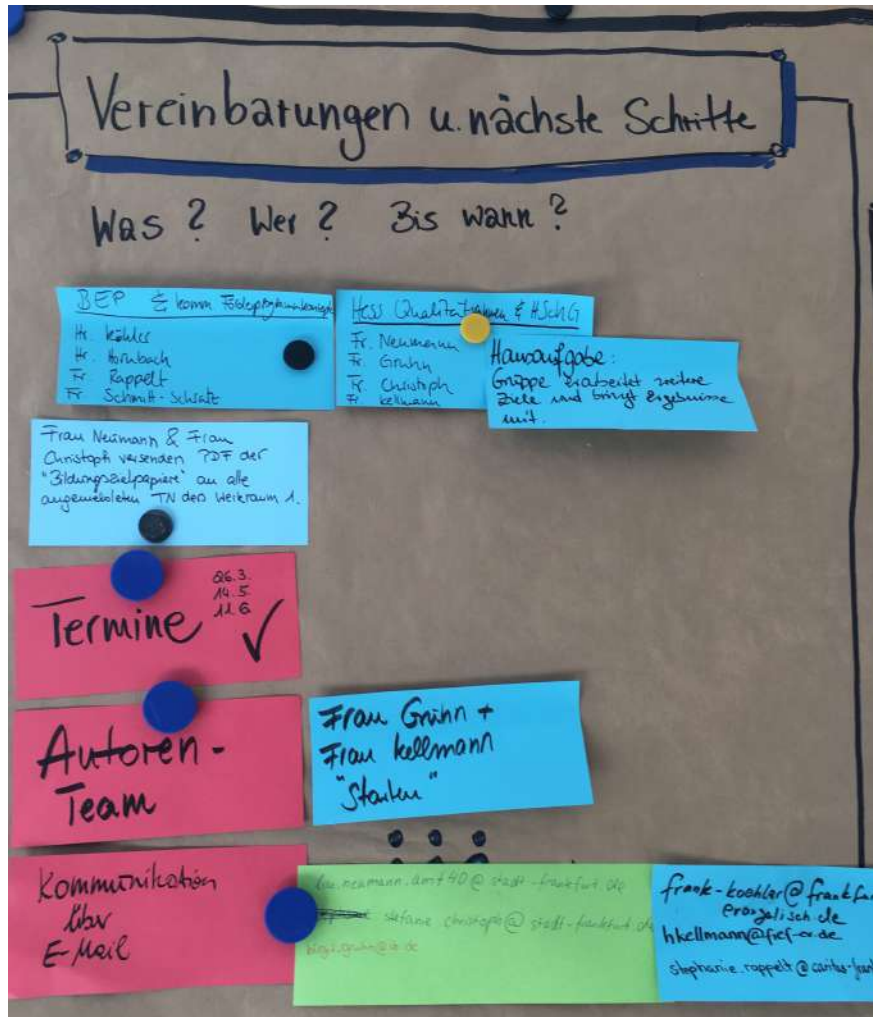 Vereinbarungen u. nächste Schritte
Was? Wer? Bis wann?
BEP & komm
Hr. Köhler
Hr. Hornbach
Fr. Rappelt
Fr. Schmitt-
Hess Qualitätsrahmen & HSchG
Fr. Neumann
Fr. Gruhn
Fr. Christoph
Fr. Kellmann
Hausaufgabe:
Gruppe erarbeitet weitere
Ziele und bringt Ergebnisse
mit.
Frau Neumann & Frau
Christoph versenden PDF der
"Bildungszielpapiere" an alle
angemeldeten TN des Werkraum 1.
Termine
26.3.
14.5.
11.6.
Autoren-
Team
Frau Gruhn +
Frau Kellmann
"Starten"
Kommunikation
über
E-Mail
neumann.amt40@stadt-frankfurt.de
stefanie.christoph@stadt-frankfurt.de
frank-koehler@frankfur
evangelisch.de
stephanie.rappelt@caritas-frank